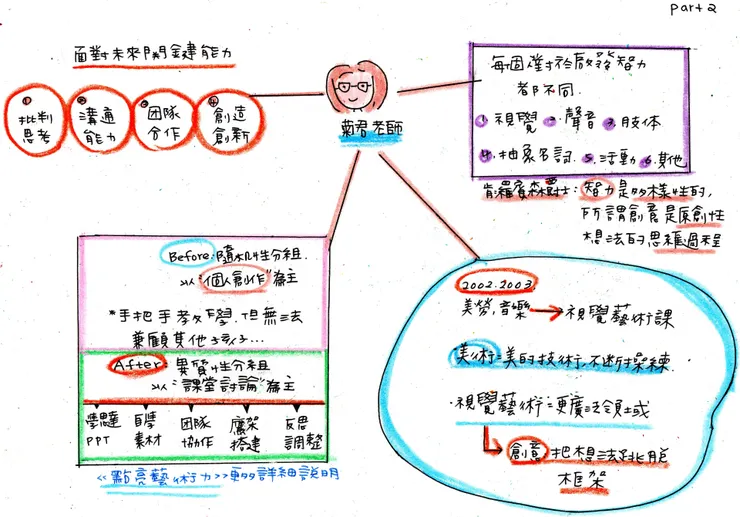 part 2
面對未來關鍵能力
① 批判思考
② 溝通能力
③ 團隊合作
④ 創造創新
菊君老師
每個人對於啟發智力
都不同.
1. 視覺 2. 聲音 3. 肢体
4. 抽象名詞. 5. 活動 6. 其他
肯羅賓森爵士: 智力是多樣性的,
所謂創意是原創性
想法的思維過程
Before: 隨机性分組.
以"個人創作"為主
*手把手教學, 但無法
兼顧其他孩子...
After: 異質性分組
以"課堂討論"為主
學思達
PPT
自學
素材
團隊
協作
鷹架
搭建
反思
調整
<<點亮藝術力>>更多詳細說明
2002.2003.
美勞.音樂 → 視覺藝術課
美術=美的技術,不斷操練.
·視覺藝術=更廣泛領域
創意 把想法跳脫
框架